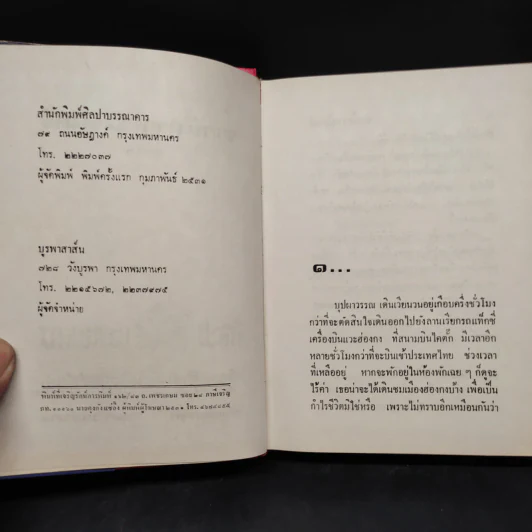 สำนักพิมพ์ศิลปาบรรณาคาร
๗๙ ถนนอัษฎางค์ กรุงเทพมหานคร
โทร. ๒๒๒๗๐๓๗
ผู้จัดพิมพ์ พิมพ์ครั้งแรก กุมภาพันธ์ ๒๕๓๑
บูรพาสาส์น
๗๒๘ วังบูรพา กรุงเทพมหานคร
โทร. ๒๒๑๕๖๗๒, ๒๒๓๗๙๗๕
ผู้จัดจำหน่าย
๑...
บุปผาวรรณ เดินเวียนวนอยู่เกือบครึ่งชั่วโมง
กว่าที่จะตัดสินใจเดินออกไปยังลานเรียกรถแท็กซี่
เครื่องบินแวะฮ่องกง ที่สนามบินไคตั๊ก มีเวลาอีก
หลายชั่วโมงกว่าที่จะบินเข้าประเทศไทย ช่วงเวลา
ที่เหลืออยู่ หากจะพักอยู่ในห้องพักเฉย ๆ ก็ดูจะ
ไร้ค่า เธอน่าจะได้เดินชมเมืองฮ่องกงบ้าง เพื่อเป็น
กำไรชีวิตมิใช่หรือ เพราะไม่ทราบอีกเหมือนกันว่า